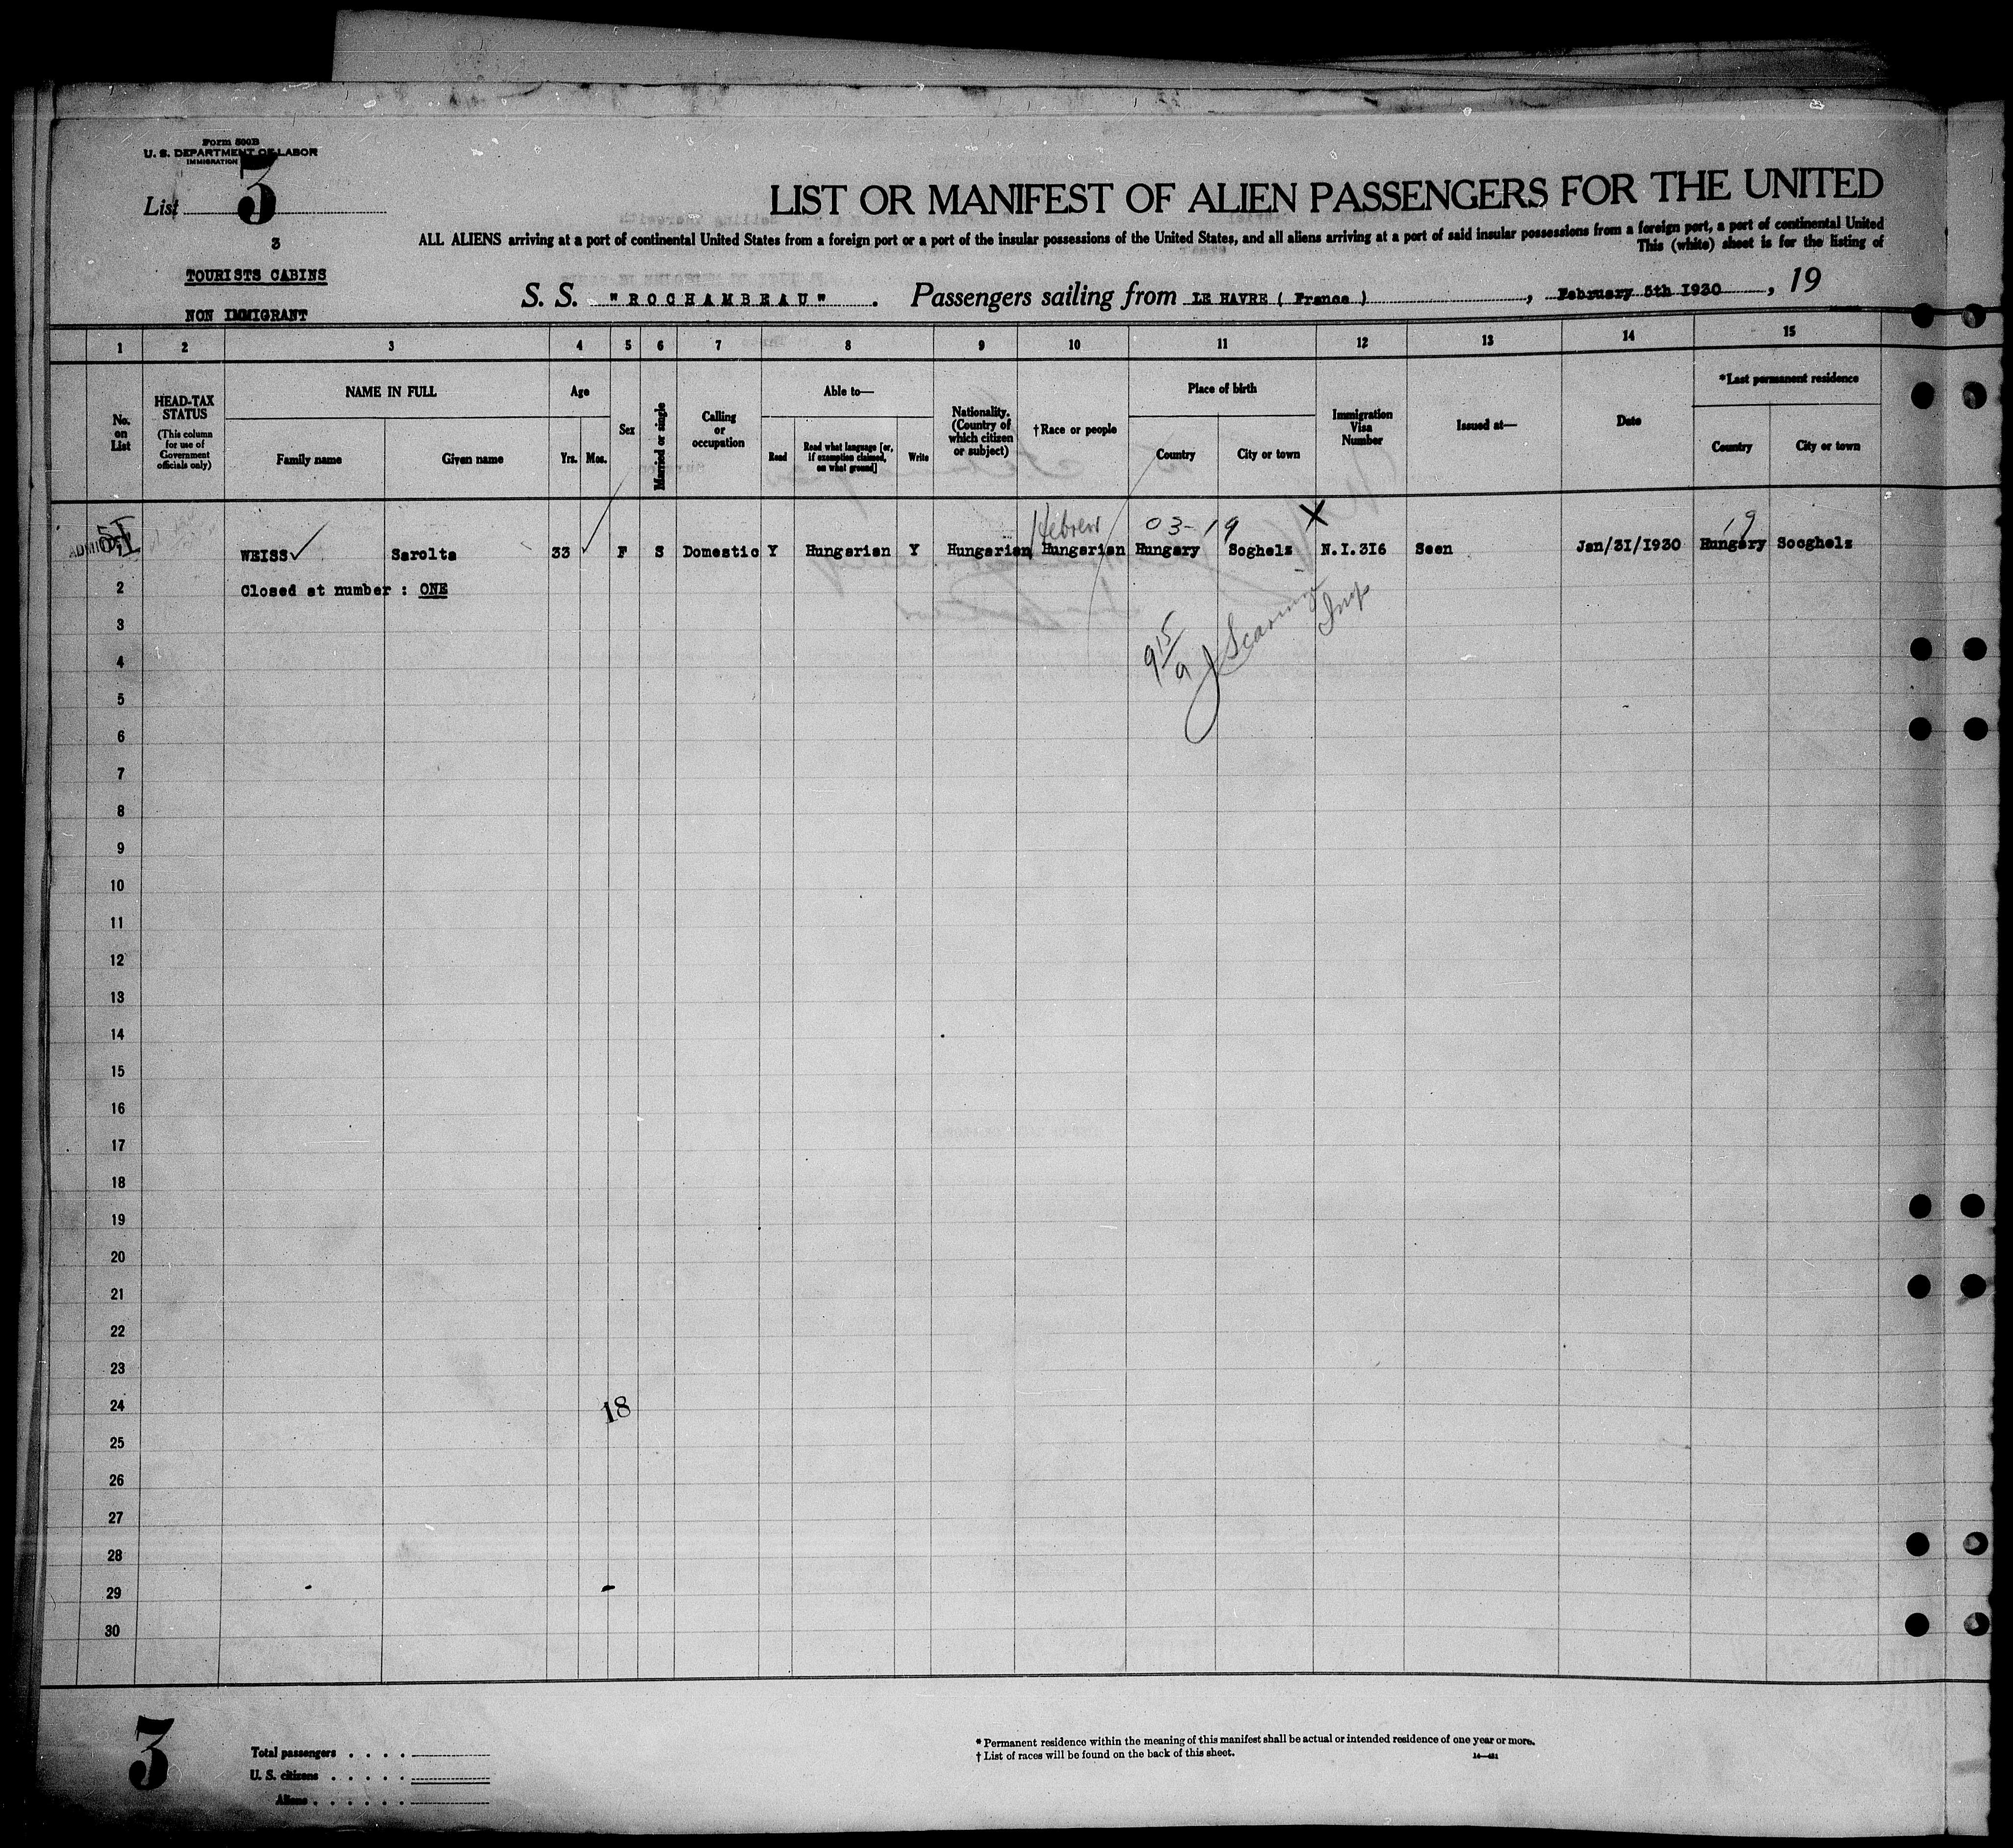 Form 500B
U. S. DEPARTMENT OF LABOR
IMMIGRATION
List 3
3
TOURISTS CABINS
NON IMMIGRANT
LIST OR MANIFEST OF ALIEN PASSENGERS FOR THE UNITED
ALL ALIENS arriving at a port of continental United States from a foreign port or a port of the insular possessions of the United States, and all aliens arriving at a port of said insular possessions from a foreign port, a port of continental United
This (white) sheet is for the listing of
S. S. "ROCHAMBEAU" . Passengers sailing from LE HAVRE ( France ) , February 5th 1930 , 19
1 2 3 4 5 6 7 8 9 10 11 12 13 14 15
No. on List
HEAD-TAX STATUS (This column for use of Government officials only)
NAME IN FULL
Family name Given name
Age
Yrs. Mos.
Sex
Married or single
Calling or occupation
Able to—
Read
Read what language [or, if exemption claimed, on what ground]
Write
Nationality. (Country of which citizen or subject)
†Race or people
Place of birth
Country City or town
Immigration Visa Number
Issued at—
Date
*Last permanent residence
Country City or town
Hebrew 03-19 X 19
WEISS✓ Sarolta 33 ✓ F S Domestic Y Hungarian Y Hungarian Hungarian Hungary Soghels N.I.316 Seen Jan/31/1930 Hungary Sooghels
2 Closed at number : ONE
3
4
915 a J Scarning Insp
5
6
7
8
9
10
11
12
13
14
15
16
17
18
19
20
21
22
23
24
18
25
26
27
28
29
30
3
Total passengers . . . .
U. S. citizens . . . . .
Aliens . . . . . .
* Permanent residence within the meaning of this manifest shall be actual or intended residence of one year or more.
† List of races will be found on the back of this sheet.